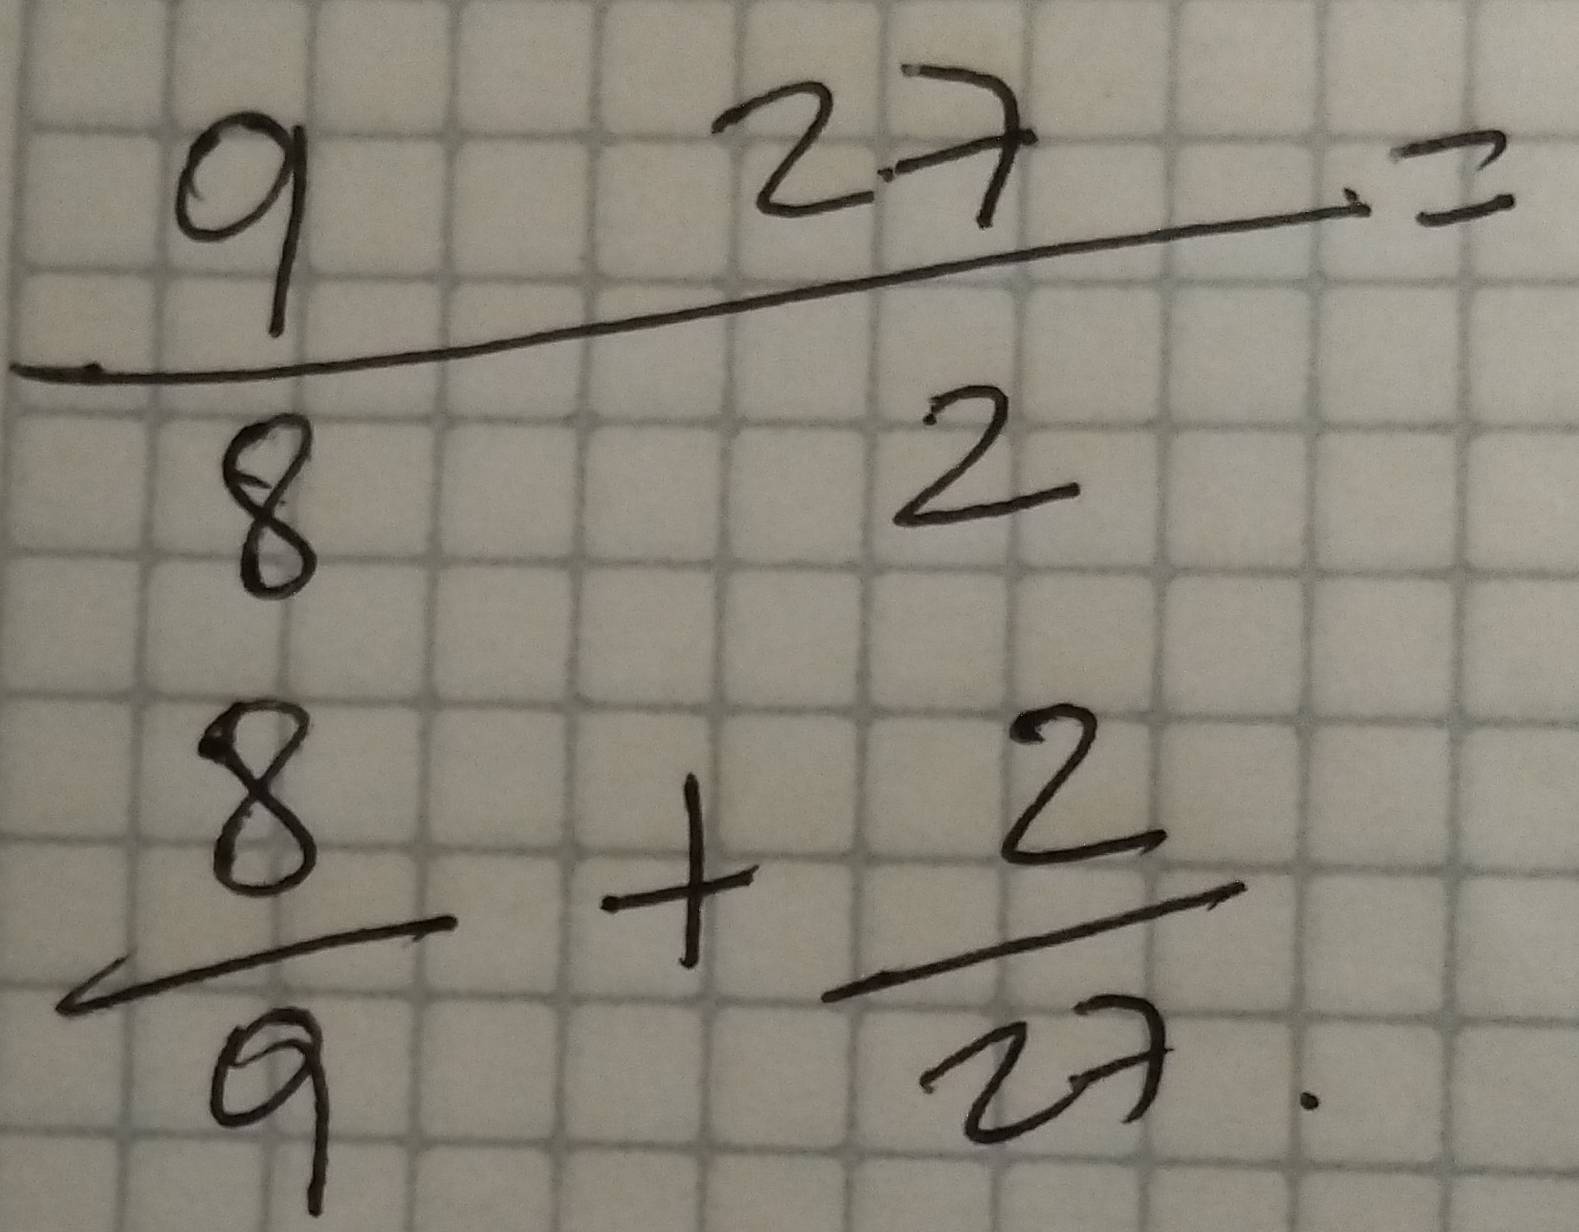 9 27 =
8 2
8 + 2
9 27.